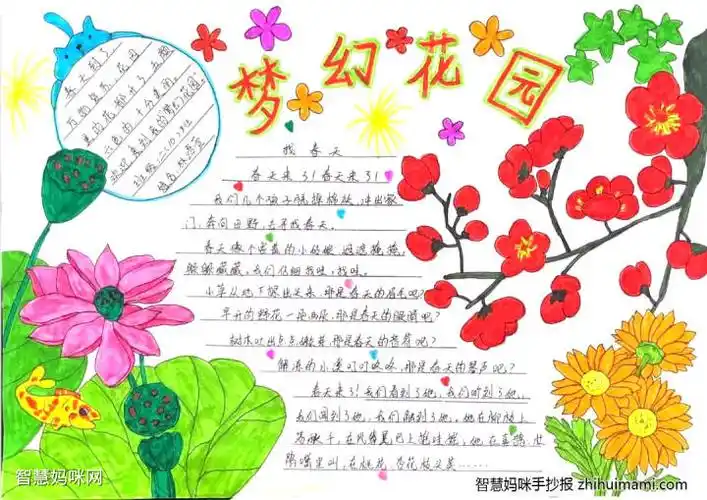 梦幻花园
春天到了
万物复苏,花园
里的花都开了,五颜
六色的十分美丽。
欢迎来到我的"梦幻花园"
班级:二(10)班
找春天
春天来了!春天来了!
我们几个孩子脱掉棉袄,冲出家
门,奔向田野,去寻找春天。
春天像个害羞的小姑娘,遮遮掩掩,
躲躲藏藏,我们仔细找呀,找呀。
小草从地下探出头来,那是春天的眉毛吧?
早开的野花一朵两朵,那是春天的眼睛吧?
树木吐出点点嫩芽,那是春天的音符吧?
解冻的小溪叮叮咚咚,那是春天的琴声吧?
春天来了!我们看到了她,我们听到了她,
我们闻到了她,我们触到了她。她在柳枝上
荡秋千,在风筝尾巴上摇哇摇,她在喜鹊、杜
鹃嘴里叫,在桃花、杏花枝头笑……
智慧妈咪网
智慧妈咪手抄报 zhihuimami.com